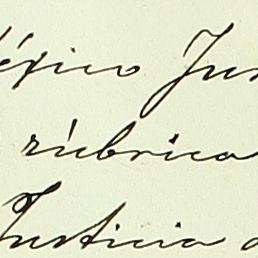 México Jun
rúbrica
Justicia a